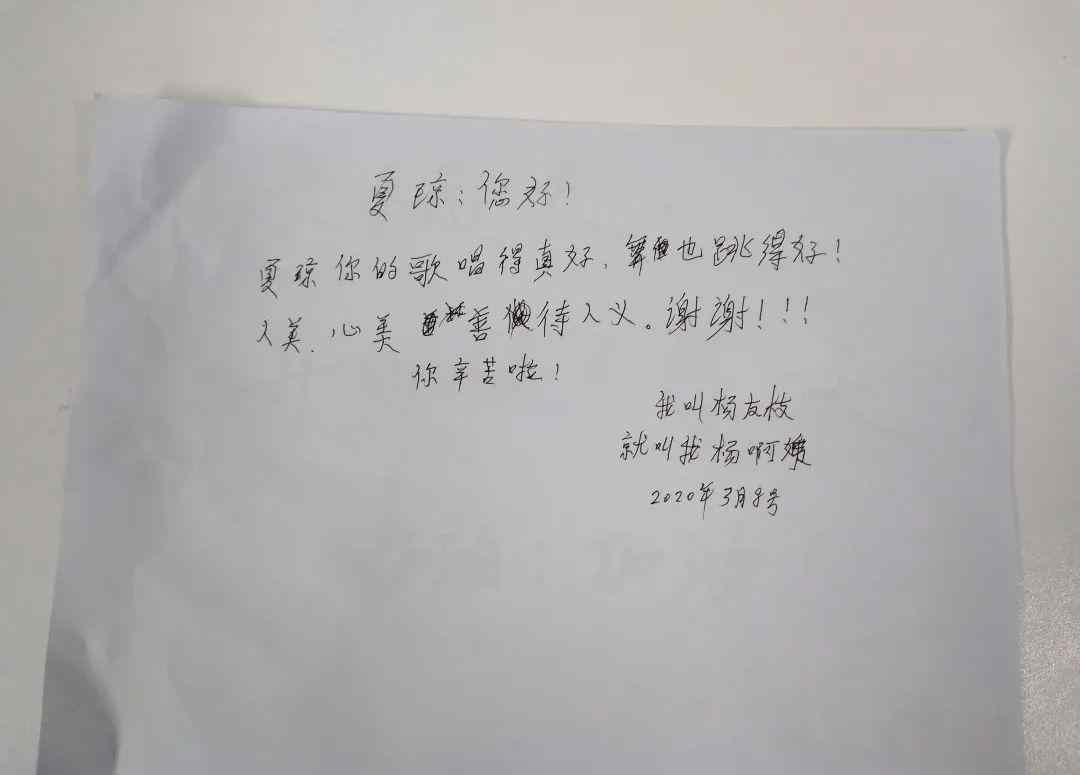 夏琼：您好！
夏琼你的歌唱得真好、舞也跳得好！
人美、心美 善待人义。谢谢！！！
你辛苦啦！
我叫杨友枝
就叫我杨啊姨
2020年3月8号